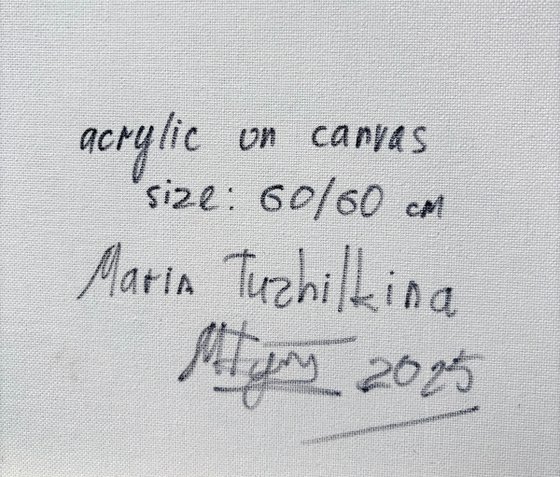 acrylic on canvas
size: 60/60 cm
Marin Tuzhilkina
2025